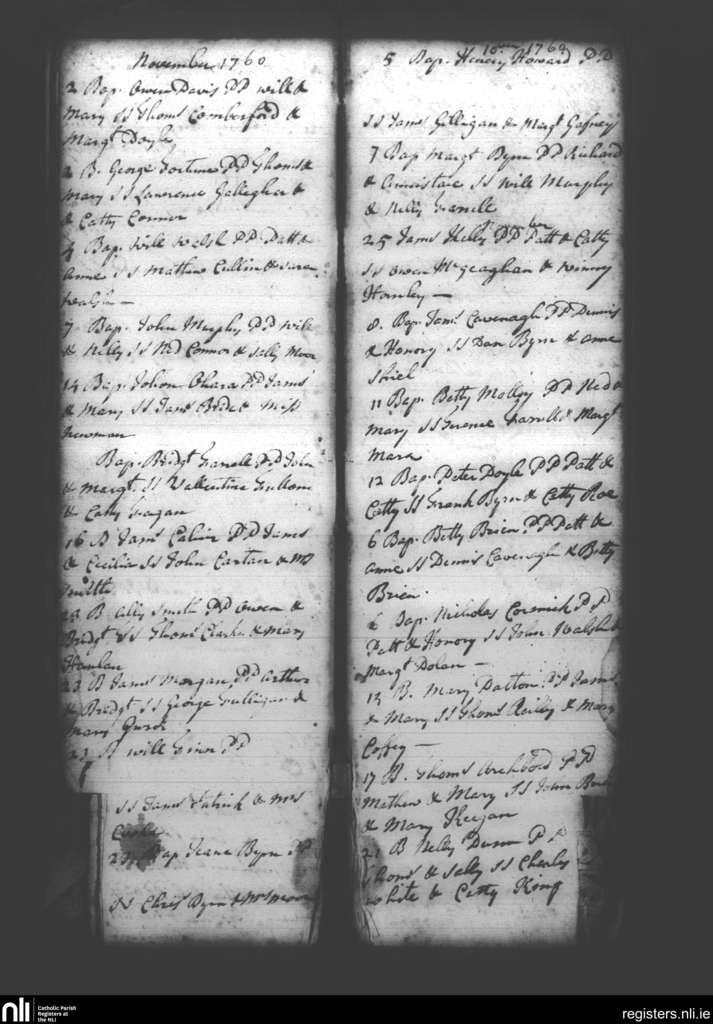 November 1760
2 Bap. Owen Davis PP will &
Mary SS Thoms Comberford &
Margt Doyle
2 B. George Fortune PP Thoms &
Mary SS Lawrence Gallegher &
& Catty Connor
4 Bap. Will Walsh PP Patt &
Anne SS Mathew Cullin &
Walsh —
7 Bap. John Murphy PP Will
& Nelly SS Ned Connor & Sally Moor
14 Bap. John Ohara PP James
& Mary SS James Bride & Miss
Newman
Bap. Bridgt Farrell PP John
& Margt SS Vallentine
& Catty Fagan
16 B James PP James
& Cecilia SS John Cartan & Ms
Smitth
23 B Smith PP Owen &
Bridgt SS Thoms Clarke & Mary
Hanlan
23 B James Morgan PP Arthur
& Bridgt SS George &
Mary
23 B will PP
SS James Patrick & Mrs
Bap. Byrn PP
SS Chris Byrn & Mrs Moor
10ber 1760
5 Bap. Henery Howard PP
SS James Gilligan & Margt Gafney
7 Bap Margt Byrn PP Richard
& SS Will Murphy
& Nelly Farrell
25 James Kelly PP Patt & Catty
SS Owen Mcgeaghan & Winny
Hanley —
8. Bap. James Cavenagh PP Dennis
& Honory SS Dan Byrn & Anne
Shiel
11 Bap. Betty Molloy PP Ned &
Mary SS Terence Farrell & Margt
Mara
12 Bap. Peter Doyle PP Patt &
Catty SS Frank Byrn & Catty Roe
6 Bap. Betty Brien PP Patt &
Anne SS Dennis Cavenagh & Betty
Brien.
6 Bap. Nicholas Cormick PP
Patt & Honory SS John Walsh &
Margt Dolan —
13 B. Mary Dalton PP James
& Mary SS Thoms Reiley & Mary
Coffey —
17 B. Thoms Archbold PP
Mathew & Mary SS John
& Mary Keegan
21 B Nelly Dunn PP
Thoms & Sally SS Charley
White & Catty King
nli
Catholic Parish
Registers at
the NLI
registers.nli.ie